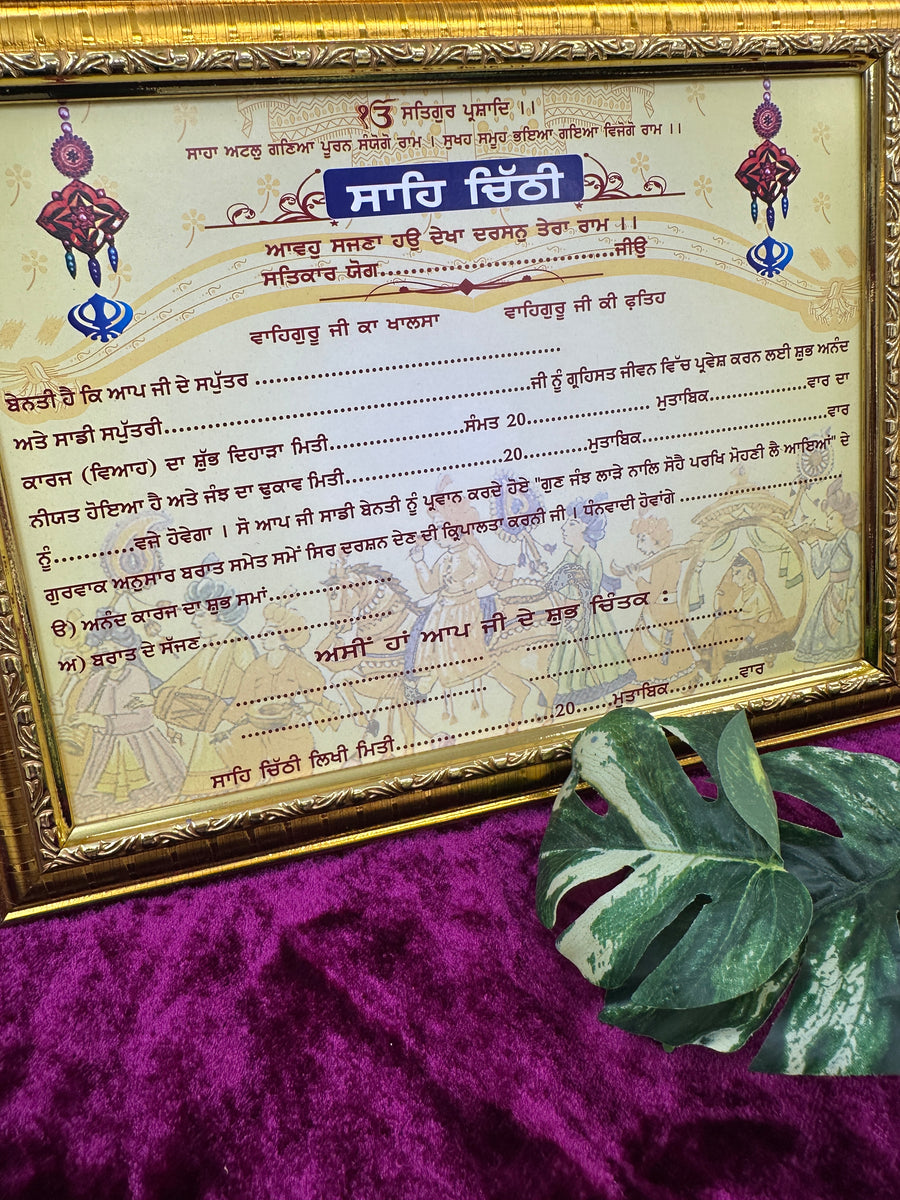 ੴ ਸਤਿਗੁਰ ਪ੍ਰਸ਼ਾਦਿ ।।
ਸਾਹਾ ਅਟਲੁ ਗਣਿਆ ਪੂਰਨ ਸੰਯੋਗੋ ਰਾਮ । ਸੁਖਹ ਸਮੂਹ ਭਇਆ ਗਇਆ ਵਿਜੋਗੋ ਰਾਮ ।।
ਸਾਹਿ ਚਿੱਠੀ
ਆਵਹੁ ਸਜਣਾ ਹਉ ਦੇਖਾ ਦਰਸਨੁ ਤੇਰਾ ਰਾਮ ।।
ਸਤਿਕਾਰ ਯੋਗ..............................ਜੀਉ
ਵਾਹਿਗੁਰੂ ਜੀ ਕਾ ਖਾਲਸਾ ਵਾਹਿਗੁਰੂ ਜੀ ਕੀ ਫ਼ਤਿਹ
ਬੇਨਤੀ ਹੈ ਕਿ ਆਪ ਜੀ ਦੇ ਸਪੁੱਤਰ ........................................
ਅਤੇ ਸਾਡੀ ਸਪੁੱਤਰੀ..................................................ਜੀ ਨੂੰ ਗ੍ਰਹਿਸਤ ਜੀਵਨ ਵਿੱਚ ਪ੍ਰਵੇਸ਼ ਕਰਨ ਲਈ ਸ਼ੁਭ ਅਨੰਦ
ਕਾਰਜ (ਵਿਆਹ) ਦਾ ਸ਼ੁੱਭ ਦਿਹਾੜਾ ਮਿਤੀ..................ਸੰਮਤ 20................ ਮੁਤਾਬਿਕ.............ਵਾਰ ਦਾ
ਨੀਯਤ ਹੋਇਆ ਹੈ ਅਤੇ ਜੰਝ ਦਾ ਢੁਕਾਵ ਮਿਤੀ.....................20..........ਮੁਤਾਬਿਕ........................ਵਾਰ
ਨੂੰ............ਵਜੇ ਹੋਵੇਗਾ । ਸੋ ਆਪ ਜੀ ਸਾਡੀ ਬੇਨਤੀ ਨੂੰ ਪ੍ਰਵਾਨ ਕਰਦੇ ਹੋਏ "ਗੁਣ ਜੰਝ ਲਾੜੇ ਨਾਲਿ ਸੋਹੈ ਪਰਖਿ ਮੋਹਣੀ ਲੈ ਆਇਆਂ" ਦੇ
ਗੁਰਵਾਕ ਅਨੁਸਾਰ ਬਰਾਤ ਸਮੇਤ ਸਮੇਂ ਸਿਰ ਦਰਸ਼ਨ ਦੇਣ ਦੀ ਕ੍ਰਿਪਾਲਤਾ ਕਰਨੀ ਜੀ । ਧੰਨਵਾਦੀ ਹੋਵਾਂਗੇ ....................
ੳ) ਅਨੰਦ ਕਾਰਜ ਦਾ ਸ਼ੁਭ ਸਮਾਂ..................
ਅ) ਬਰਾਤ ਦੇ ਸੱਜਣ............................
ਅਸੀਂ ਹਾਂ ਆਪ ਜੀ ਦੇ ਸ਼ੁਭ ਚਿੰਤਕ :
.............................. ..............................
.............................. ..............................
ਸਾਹਿ ਚਿੱਠੀ ਲਿਖੀ ਮਿਤੀ.....................20.....ਮੁਤਾਬਿਕ...........ਵਾਰ